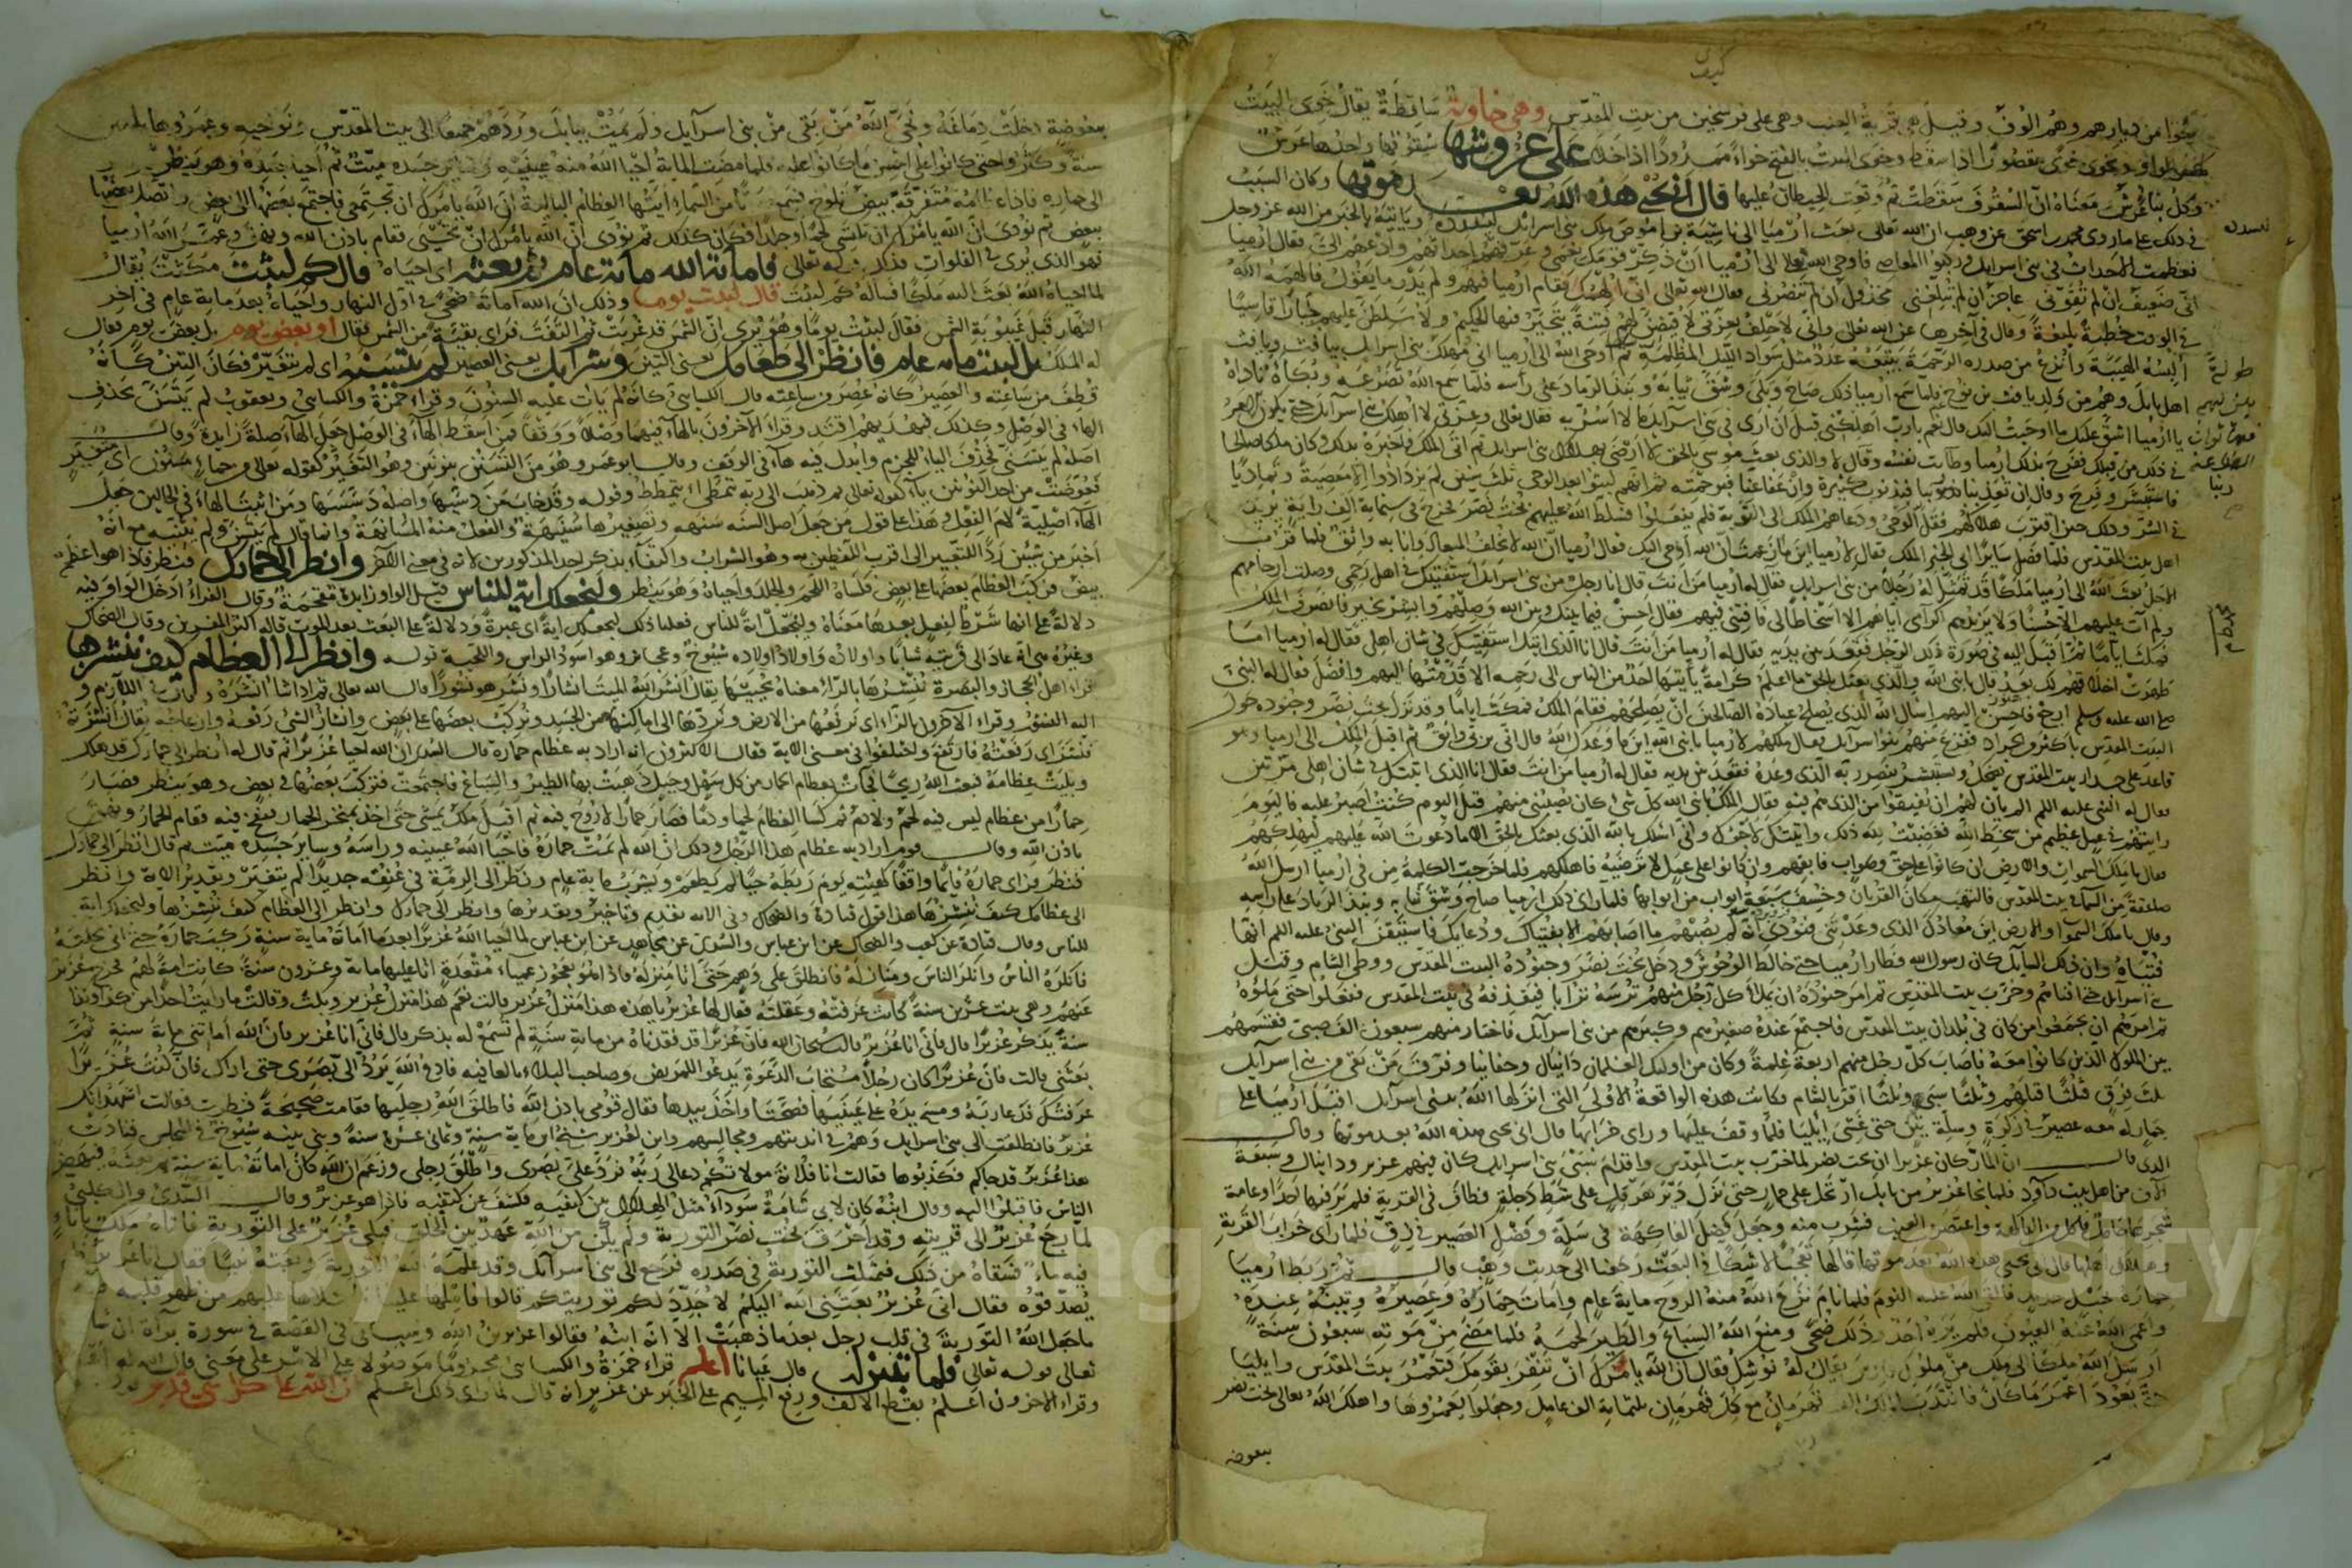 كيف
خرجوا من ديارهم وهم الوف وقيل هي قرية العنب وهي على فرسخين من بيت المقدس وهي خاوية ساقطة يقال خوى البيت
بكسر الواو يخوى خوى مقصورا اذا سقط وخوى البيت بالفتح خواء ممدودا اذا خلا على عروشها سقوفها واحدها عرش
وكل بناء عرش معناه ان السقوف سقطت ثم وقعت الحيطان عليها قال انى يحيي هذه الله بعد موتها وكان السبب
في ذلك على ما روى محمد بن اسحق عن وهب ان الله تعالى بعث ارميا الى ناشية بن اموص ملك بني اسرائيل ليسدده وياتيه بالخبر من الله عز وجل
فعظمت الاحداث في بني اسرائيل وركبوا المعاصي فاوحى الله تعالى الى ارميا ان ذكر قومك نعمي وعرفهم احداثهم وادعهم الي فقال ارميا
اني ضعيف ان لم تقوني عاجز ان لم تبلغني مخذول ان لم تنصرني فقال الله تعالى اني الهمك فقام ارميا فيهم ولم يدر ما يقول فالهمه الله
في الوقت خطبة بليغة وقال في آخرها عن الله تعالى واني لاحلف بعزتي لاقيضن لهم فتنة يتحير فيها الحليم ولاسلطن عليهم جبارا قاسيا
البسه الهيبة وانزع من صدره الرحمة يتبعه عدد مثل سواد الليل المظلم ثم اوحى الله الى ارميا اني مهلك بني اسرائيل بيافث ويافث
اهل بابل وهم من ولد يافث بن نوح فلما سمع ارميا ذلك صاح وبكى وشق ثيابه ونبذ الرماد على رأسه فلما سمع الله تضرعه وبكاه ناداه
يا ارميا اشق عليك ما اوحيت اليك قال نعم يا رب اهلكني قبل ان ارى في بني اسرائيل ما لا اسر به فقال تعالى وعزتي لا اهلك بني اسرائيل حتى يكون الامر
في ذلك من قبلك ففرح بذلك ارميا وطابت نفسه وقال لا والذي بعث موسى بالحق لا ارضى بهلاك بني اسرائيل ثم اتى الملك فاخبره بذلك وكان ملكا صالحا
فاستبشر وفرح وقال ان يعذبنا ربنا فبذنوب كثيرة وان عفا عنا فبرحمته ثم انهم لبثوا بعد الوحي ثلث سنين لم يزدادوا الا معصية وتماديا
في الشر وذلك حين اقترب هلاكهم فقل الوحي ودعاهم الملك الى التوبة فلم يفعلوا فسلط الله عليهم بخت نصر فخرج في ستماية الف راية يريد
اهل بيت المقدس فلما فصل سايرا اتى الخبر الملك فقال لارميا اين ما زعمت ان الله اوحى اليك فقال ارميا ان الله لا يخلف الميعاد وانا به واثق فلما قرب
الاجل بعث الله الى ارميا ملكا قد تمثل له رجلا من بني اسرائيل فقال له ارميا من انت قال انا رجل من بني اسرائيل استفتيك في اهل رحمي وصلت ارحامهم
ولم آت عليهم الا حسنا ولا يزيدهم اكرامي اياهم الا اسخاطا لي فافتني فيهم فقال احسن فيما بينك وبين الله وصلهم وابشر بخير فانصرف الملك
فمكث اياما ثم اقبل اليه في صورة ذلك الرجل فقعد بين يديه فقال له ارميا من انت قال انا الذي اتيتك استفتيك في شان اهلي فقال له ارميا اما
طهرت اخلاقهم لك بعد قال يا نبي الله والذي بعثك بالحق ما اعلم كرامة ياتيها احد من الناس الى رحمه الا قدمتها اليهم وافضل فقال له النبي
صلى الله عليه وسلم ارجع فاحسن اليهم اسال الله الذي يصلح عباده الصالحين ان يصلحهم فقام الملك فمكث اياما وقد نزل بخت نصر وجنوده حول
البيت المقدس باكثر من الجراد ففزع منهم بنو اسرائيل فقال ملكهم لارميا يا نبي الله اين ما وعدك الله قال اني بربي واثق ثم اقبل الملك الى ارميا وهو
قاعد على جدار بيت المقدس يضحك ويستبشر بنصر ربه الذي وعده فقعد بين يديه فقال له ارميا من انت فقال انا الذي اتيتك في شان اهلي مرتين
فقال له النبي عليه السلم الم يان لهم ان يفيقوا من الذي هم فيه فقال الملك يا نبي الله كل شيء كان يصيبني منهم قبل اليوم كنت اصبر عليه فاليوم
رايتهم في عمل عظيم من سخط الله فغضبت لله ذلك واتيتك لاخبرك واني اسئلك بالله الذي بعثك بالحق الا ما دعوت الله عليهم ليهلكهم
فقال يا ملك السموات والارض ان كانوا على حق وصواب فابقهم وان كانوا على عمل لا ترضيه فاهلكهم فلما خرجت الكلمة من في ارميا ارسل الله
صاعقة من السماء في بيت المقدس فالتهب مكان القربان وخسف بسبعة ابواب من ابوابها فلما راى ذلك ارميا صاح وشق ثيابه ونبذ الرماد على راسه
وقال يا ملك السموات والارض اين ميعادك الذي وعدتني فنودي انه لم يصبهم ما اصابهم الا بفتياك ودعايك فاستيقن النبي عليه السلم انها
فتياه وان ذلك السائل كان رسول الله فطار ارميا حتى خالط الوحوش ودخل بخت نصر وجنوده البيت المقدس ووطئ الشام وقتل
بني اسرائيل حتى افناهم وخرب بيت المقدس ثم امر جنوده ان يملا كل رجل منهم ترسه ترابا فيقذفه في بيت المقدس ففعلوا حتى ملؤه
ثم امرهم ان يجمعوا من كان في بلدان بيت المقدس فاجتمع عنده صغيرهم وكبيرهم من بني اسرائيل فاختار منهم سبعون الف صبي فقسمهم
بين الملوك الذين كانوا معه فاصاب كل رجل منهم اربعة غلمة وكان من اوليك الغلمان دانيال وحنانيا وفرق من بقي من بني اسرائيل
ثلث فرق فثلثا قتلهم وثلثا سبى وثلثا اقر بالشام فكانت هذه الواقعة الاولى التي انزلها الله ببني اسرائيل اقبل ارميا على
حمار له معه عصير في ركوة وسلة تين حتى غشي ايليا فلما وقف عليها وراى خرابها قال انى يحيي هذه الله بعد موتها وقال
الذي قال ان المار كان عزيرا ان بخت نصر لما خرب بيت المقدس واقدم بسبي بني اسرائيل كان فيهم عزير ودانيال وسبعة
آلاف من اهل بيت داود فلما نجا عزير من بابل ارتحل على حمار حتى نزل دير هرقل على شط دجلة فطاف في القرية فلم ير فيها احدا وعامة
شجرها حامل فاكل من الفاكهة واعتصر من العنب فشرب منه وجعل فضل الفاكهة في سلة وفضل العصير في زق فلما راى خراب القرية
وهلاك اهلها قال انى يحيي هذه الله بعد موتها قالها تعجبا لا شكا في البعث رجعنا الى حديث وهب قال ثم ربط ارميا
حماره بحبل جديد فالقى الله عليه النوم فلما نام نزع الله منه الروح ماية عام وامات حماره وعصيره وتينه عنده
واعمى الله عنه العيون فلم يره احد وذلك ضحى ومنع الله السباع والطير لحمه فلما مضى من موته سبعون سنة
ارسل الله ملكا الى ملك من ملوك فارس يقال له نوشك فقال ان الله يامرك ان تنفر بقومك فتعمر بيت المقدس وايليا
حتى يعود اعمر ما كان فانتدب الملك الف قهرمان مع كل قهرمان ثلثماية الف عامل وجعلوا يعمرونها واهلك الله تعالى بخت نصر
ببعوضة
ببعوضة دخلت دماغه ونجى الله من بقي من بني اسرائيل ولم يمت ببابل وردهم جميعا الى بيت المقدس ونواحيه وعمروها ثلثين
سنة وكثروا حتى كانوا على احسن ما كانوا عليه فلما مضت الماية احيا الله منه عينيه وساير جسده ميت ثم احيا جسده وهو ينظر
الى حماره فاذا عظامه متفرقة بيض تلوح فسمع صوتا من السماء ايتها العظام البالية ان الله يامرك ان تجتمعي فاجتمع بعضها الى بعض واتصل بعضها
ببعض ثم نودي ان الله يامرك ان تكتسي لحما وجلدا فكان كذلك ثم نودي ان الله يامرك ان تحيي فقام باذن الله ونهق وعمر الله ارميا
فهو الذي يرى في الفلوات فذلك قوله تعالى فاماته الله ماية عام ثم بعثه اي احياه قال كم لبثت مكثت يقال
لما احياه الله بعث اليه ملكا فساله كم لبثت قال لبثت يوما وذلك ان الله اماته ضحى في اول النهار واحياه بعد ماية عام في اخر
النهار قبل غيبوبة الشمس فقال لبثت يوما وهو يرى ان الشمس قد غربت ثم التفت فراى بقية من الشمس فقال او بعض يوم بل بعض يوم فقال
له الملك بل لبثت ماية عام فانظر الى طعامك يعني التين وشرابك يعني العصير لم يتسنه اي لم يتغير فكان التين كانه
قطف من ساعته والعصير كانه عصر من ساعته قال الكسائي كانه لم يات عليه السنون وقراء حمزة والكسائي ويعقوب لم يتسن بحذف
الهاء في الوصل وكذلك فبهديهم اقتد وقراء الآخرون بالهاء فيهما وصلا ووقفا فمن اسقط الهاء في الوصل جعل الهاء صلة زايدة وقال
اصله لم يتسنى فحذف الياء للجزم وابدل فيه هاء في الوقف وقال ابو عمرو هو من التسنن بنونين وهو التغير كقوله تعالى من حماء مسنون اي متغير
فعوضت من احد النونين ياء كقوله تعالى ثم ذهب الى اهله يتمطى اي يتمطط وقوله وقد خاب من دسيها واصله دسسها ومن اثبت الهاء في الحالين جعل
الهاء اصلية لام الفعل وهذا على قول من جعل اصل السنه سنهه وتصغيرها سنيهة والفعل منه المسانهة وانما قال لم يتسنه ولم يثنه مع انه
اخبر عن شيئين ردا للتغيير الى اقرب اللفظين به وهو الشراب واكتفاء بذكر احد المذكورين لانه في معنى الآخر وانظر الى حمارك فنظر فاذا هو عظام
بيض فركب العظام بعضها على بعض فكساه اللحم والجلد واحياه وهو ينظر ولنجعلك آية للناس قيل الواو زايدة مقحمة وقال الفراء ادخل الواو فيه
دلالة على انها شرط لفعل بعدها معناه ولنجعلك آية للناس فعلنا ذلك لنجعلك آية اي عبرة ودلالة على البعث بعد الموت قاله اكثر المفسرين وقال الضحاك
وغيره انه عاد الى قريته شابا واولاده واولاد اولاده شيوخ وعجائز وهو اسود الراس واللحية قوله وانظر الى العظام كيف ننشرها
قراء اهل الحجاز والبصرة ننشرها بالراء معناه نحييها يقال انشر الله الميت انشارا ونشر هو نشورا قال الله تعالى ثم اذا شاء انشره وقال في اللازم و
اليه النشور وقراء الآخرون بالزاء اي نرفعها من الارض ونردها الى اماكنها من الجسد ونركب بعضها على بعض وانشاز الشيء رفعه وازعاجه يقال انشزته
فنشز اي رفعته فارتفع واختلفوا في معنى الاية فقال الاكثرون انه اراد به عظام حماره قال السدي ان الله احيا عزيرا ثم قال له انظر الى حمارك قد هلك
وبليت عظامه فبعث الله ريحا فجات بعظام الحمار من كل سهل وجبل ذهبت بها الطير والسباع فاجتمعت فتركب بعضها في بعض وهو ينظر فصار
حمارا من عظام ليس فيه لحم ولا دم ثم كسا العظام لحما ودما فصار حمارا لا روح فيه ثم اقبل ملك يمشي حتى اخذ بمنخر الحمار فنفخ فيه فقام الحمار ونهق
باذن الله وقال قوم اراد به عظام هذا الرجل وذلك ان الله لم يمت حماره فاحيا الله عينيه وراسه وساير جسده ميت ثم قال انظر الى حمارك
فنظر فراى حماره قائما واقفا كهيئته يوم ربطه حيا لم يطعم ولم يشرب ماية عام ونظر الى الرمة في عنقه جديدا لم يتغير وتقدير الاية وانظر
الى عظامك كيف ننشزها هذا قول قتادة والضحاك وفي الاية تقديم وتاخير وتقديرها وانظر الى حمارك وانظر الى العظام كيف ننشزها ولنجعلك اية
للناس وقال قتادة عن كعب والضحاك عن ابن عباس والسدي عن مجاهد عن ابن عباس لما احيا الله عزيرا بعد ما اماته ماية سنة ركب حماره حتى اتى محلته
فانكره الناس وانكر الناس ومنازله فانطلق على وهم حتى اتى منزله فاذا هو بعجوز عمياء مقعدة اتى عليها ماية وعشرون سنة كانت امة لهم فخرج عزير
عنهم وهي بنت عشرين سنة كانت عرفته وعقلته فقال لها عزير يا هذه هذا منزل عزير قالت نعم هذا منزل عزير وبكت وقالت ما رايت احدا من كذا وكذا
سنة يذكر عزيرا قال فاني انا عزير قالت سبحان الله فان عزيرا قد فقدناه من ماية سنة لم نسمع له بذكر قال فاني انا عزير فان الله اماتني ماية سنة ثم
بعثني قالت فان عزيرا كان رجلا مستجاب الدعوة يدعو للمريض وصاحب البلاء بالعافية فادع الله يرد الي بصري حتى اراك فان كنت عزيرا
عرفتك فدعا ربه ومسح يده على عينيها فصحتا واخذ بيدها فقال قومي باذن الله فاطلق الله رجليها فقامت صحيحة فنظرت فقالت اشهد انك
عزير فانطلقت الى بني اسرائيل وهم في انديتهم ومجالسهم وابن لعزير شيخ ابن ماية سنة وثماني عشرة سنة وبني بنيه شيوخ في المجلس فنادت
هذا عزير قد جاءكم فكذبوها فقالت انا فلانة مولاتكم دعا لي ربه فرد علي بصري واطلق رجلي وزعم ان الله كان اماته ماية سنة ثم بعثه فنهض
الناس فاقبلوا اليه وقال ابنه كان لابي شامة سوداء مثل الهلال بين كتفيه فكشف عن كتفيه فاذا هو عزير وقال السدي والكلبي
لما رجع عزير الى قريته وقد احرق بخت نصر التورية ولم يكن من الله عهد بين الخلق فبكى عزير على التورية فاتاه ملك باناء
فيه ماء فسقاه من ذلك فمثلت التورية في صدره فرجع الى بني اسرائيل وقد علمه الله التورية وبعثه نبيا فقال انا عزير فلم
يصدقوه فقال اني عزير بعثني الله اليكم لاجدد لكم توريتكم قالوا فاملها علينا فاملاها عليهم من ظهر قلبه
ما جعل الله التورية في قلب رجل بعد ما ذهبت الا انه ابنه فقالوا عزير بن الله وسياتي القصة في سورة براءة ان شاء
تعالى قوله تعالى فلما تبين له قال عيانا اعلم قراء حمزة والكسائي مجزوما موصولا على الامر على معنى قال الله له
وقراء الاخرون اعلم بقطع الالف ورفع الميم على الخبر عن عزير انه قال لما راى ذلك اعلم ان الله على كل شيء قدير